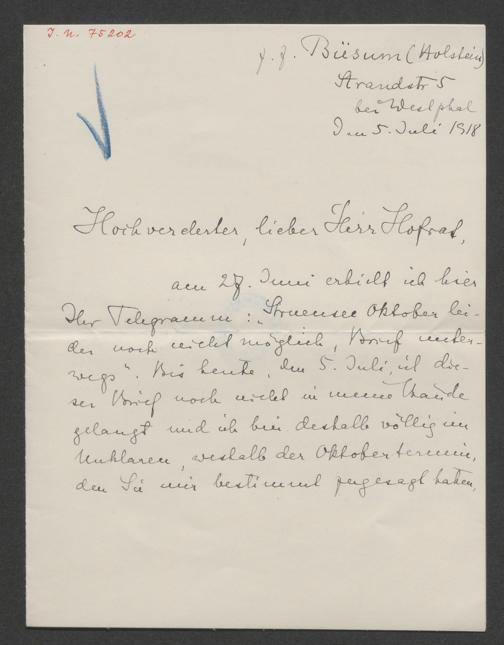 J. N. 75202
z. Z. Büsum (Holstein)
Strandstr 5
bei Westphal
Den 5. Juli 1918
Hochverehrter, lieber Herr Hofrat,
am 27. Juni erhielt ich hier
Ihr Telegramm: „Struensee Oktober lei-
der noch nicht möglich, Brief unter-
wegs“. Bis heute, den 5. Juli, ist die-
ser Brief noch nicht in meine Hände
gelangt und ich bin deshalb völlig im
Unklaren, weshalb der Oktobertermin,
den Sie mir bestimmt zugesagt hatten,